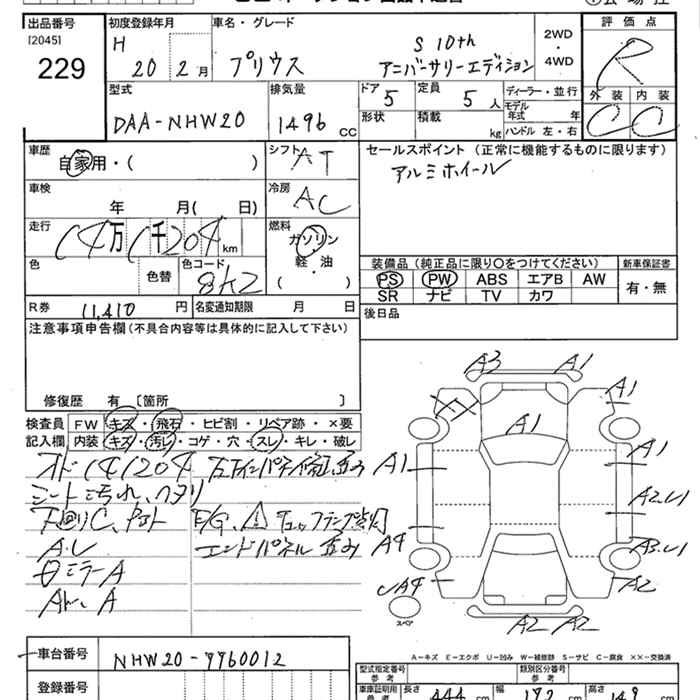 出品番号 初度登録年月 車名・グレード 評価点
[2045] H S 10th 2WD
229 20年 2月 プリウス アニバーサリーエディション ・4WD R
型式 排気量 ドア 5 定員 5人 ディーラー・並行 外装 内装
DAA-NHW20 1496 CC 形状 積載 kg モデル年式 年 C C
ハンドル 左・右
車歴 シフト AT セールスポイント (正常に機能するものに限ります)
自家用・( ) アルミホイール
車検 冷房
年 月( 日) AC
走行 燃料
14万1千204km ガソリン
・
色 色替 色コード 8K2 軽・油 装備品 (純正品に限り○をつけてください) 新車保証書
( ) PS PW ABS エアB AW 有・無
R券 11,410円 名変通知期限 月 日 SR ナビ TV カワ
注意事項申告欄 (不具合内容等は具体的に記入して下さい) 後日品
修復歴 有 [箇所 ]
検査員 FW キズ・飛石・ヒビ割・リペア跡・×要
記入欄 内装 キズ・汚レ・コゲ・穴・スレ・キレ・破レ
オド141204
シート汚れ、ヘタリ
下回りC、 E/G、⚠
エンドパネル歪み
A・し
ミラーA
A
A3 A1
A1
A1
A1 A1
A2.U1
A4 A3.U1
A4 A2
スペア
A2 A2
A-キズ E-エクボ U-凹み W-補修跡 S-サビ C-腐食 ××-交換済
車台番号 NHW20-7760012
登録番号
型式指定番号 参考 類別区分番号 参考
車庫証明用 参考 長さ 444 cm 幅 172 cm 高さ 149 cm